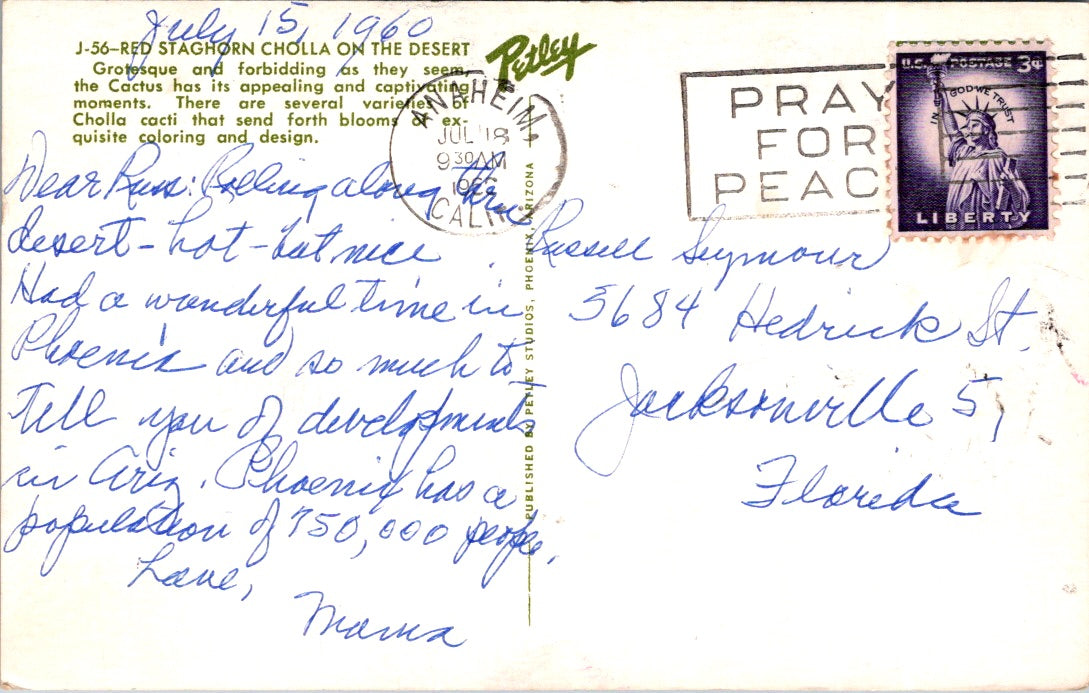 July 15, 1960
J-56—RED STAGHORN CHOLLA ON THE DESERT
Grotesque and forbidding as they seem,
the Cactus has its appealing and captivating
moments. There are several varieties of
Cholla cacti that send forth blooms of ex-
quisite coloring and design.
Petley
ANAHEIM
JUL 18
9 30 AM
1960
CALIF.
PRAY
FOR
PEAC
U.S. POSTAGE 3¢
IN GOD WE TRUST
LIBERTY
Dear Russ: Rolling along thru
desert - hot - but nice.
Had a wonderful time in
Phoenix and so much to
tell you of developments
in Ariz. Phoenix has a
population of 750,000 people.
Love,
Mama
PUBLISHED BY PETLEY STUDIOS, PHOENIX, ARIZONA
Russell Seymour
5684 Hedrick St.
Jacksonville 5,
Florida